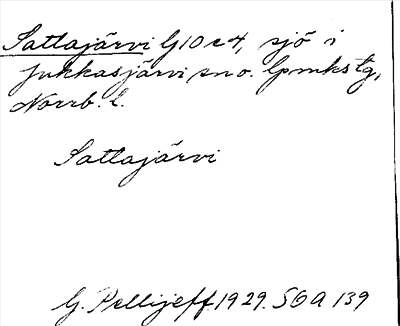 Sattajärvi G10 c4, sjö i
Jukkasjärvi sn o. lpmkstg,
Norrb. l.
Sattajärvi
G. Pellijeff 1929. SOA 139